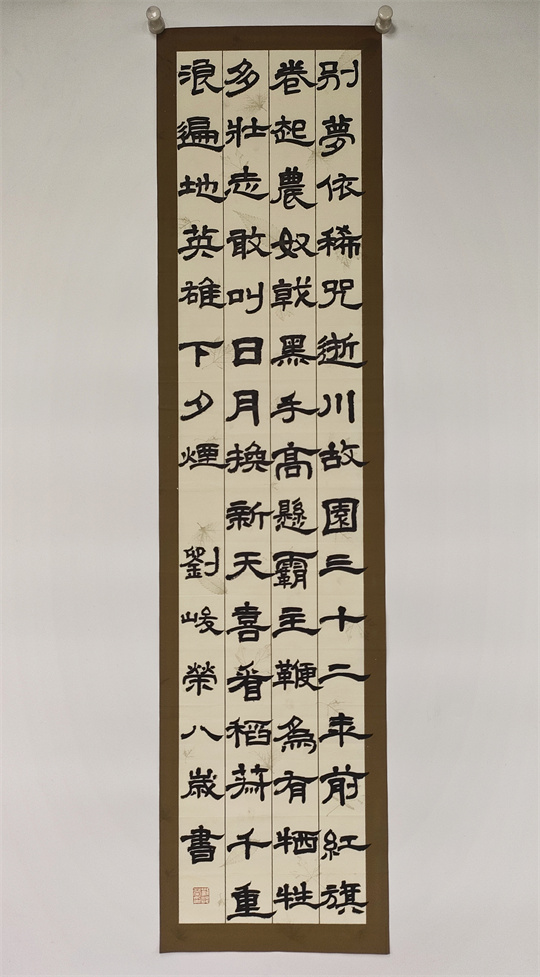 别夢依稀咒逝川故園三十二年前紅旗
卷起農奴戟黑手高懸霸主鞭為有牺牲
多壯志敢叫日月換新天喜看稻菽千重
浪遍地英雄下夕煙 劉峻榮八歲書